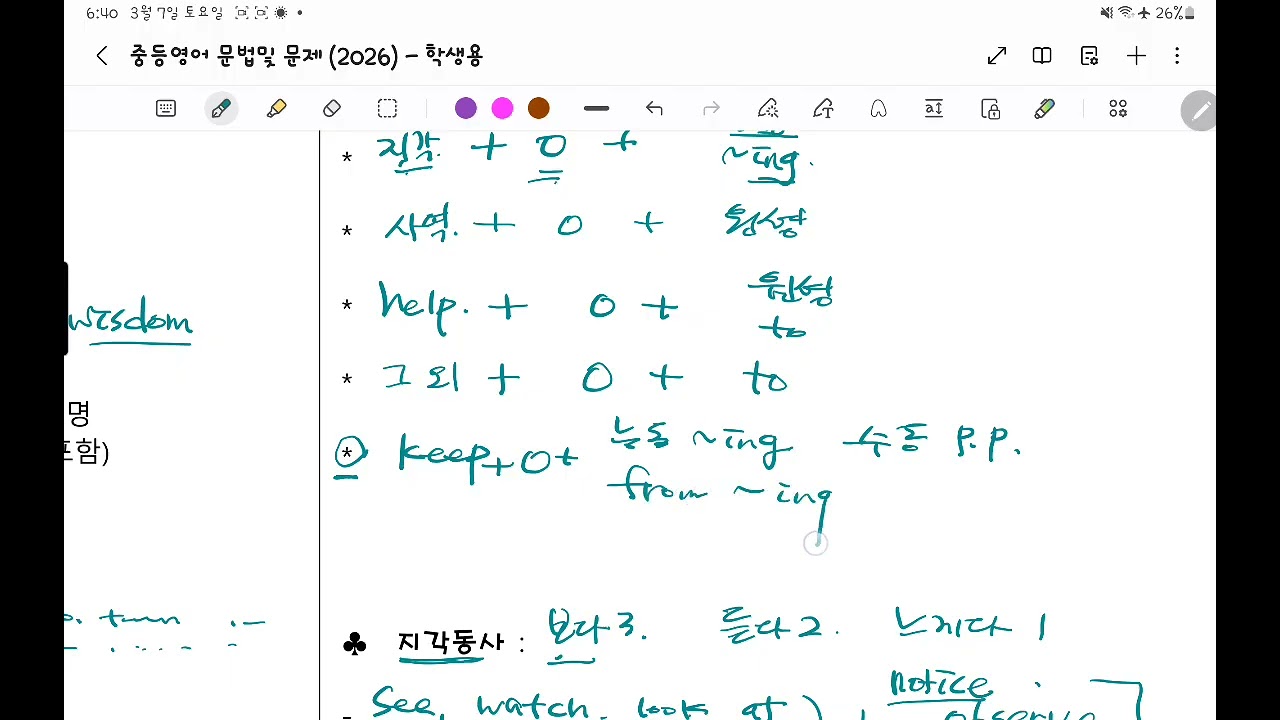 6:40 3월 7일 토요일 26%
중등영어 문법및 문제 (2026) - 학생용
* 지각 + O + ~ing.
* 사역. + O + 원형
* help. + O + 원형
to
* 그 외 + O + to
* keep + O + 능동 ~ing 수동 p.p.
from ~ing
wisdom
명
포함)
turn
♣ 지각동사 : 보다 3. 듣다 2. 느끼다 1
- See, watch, look at ) notice
observe